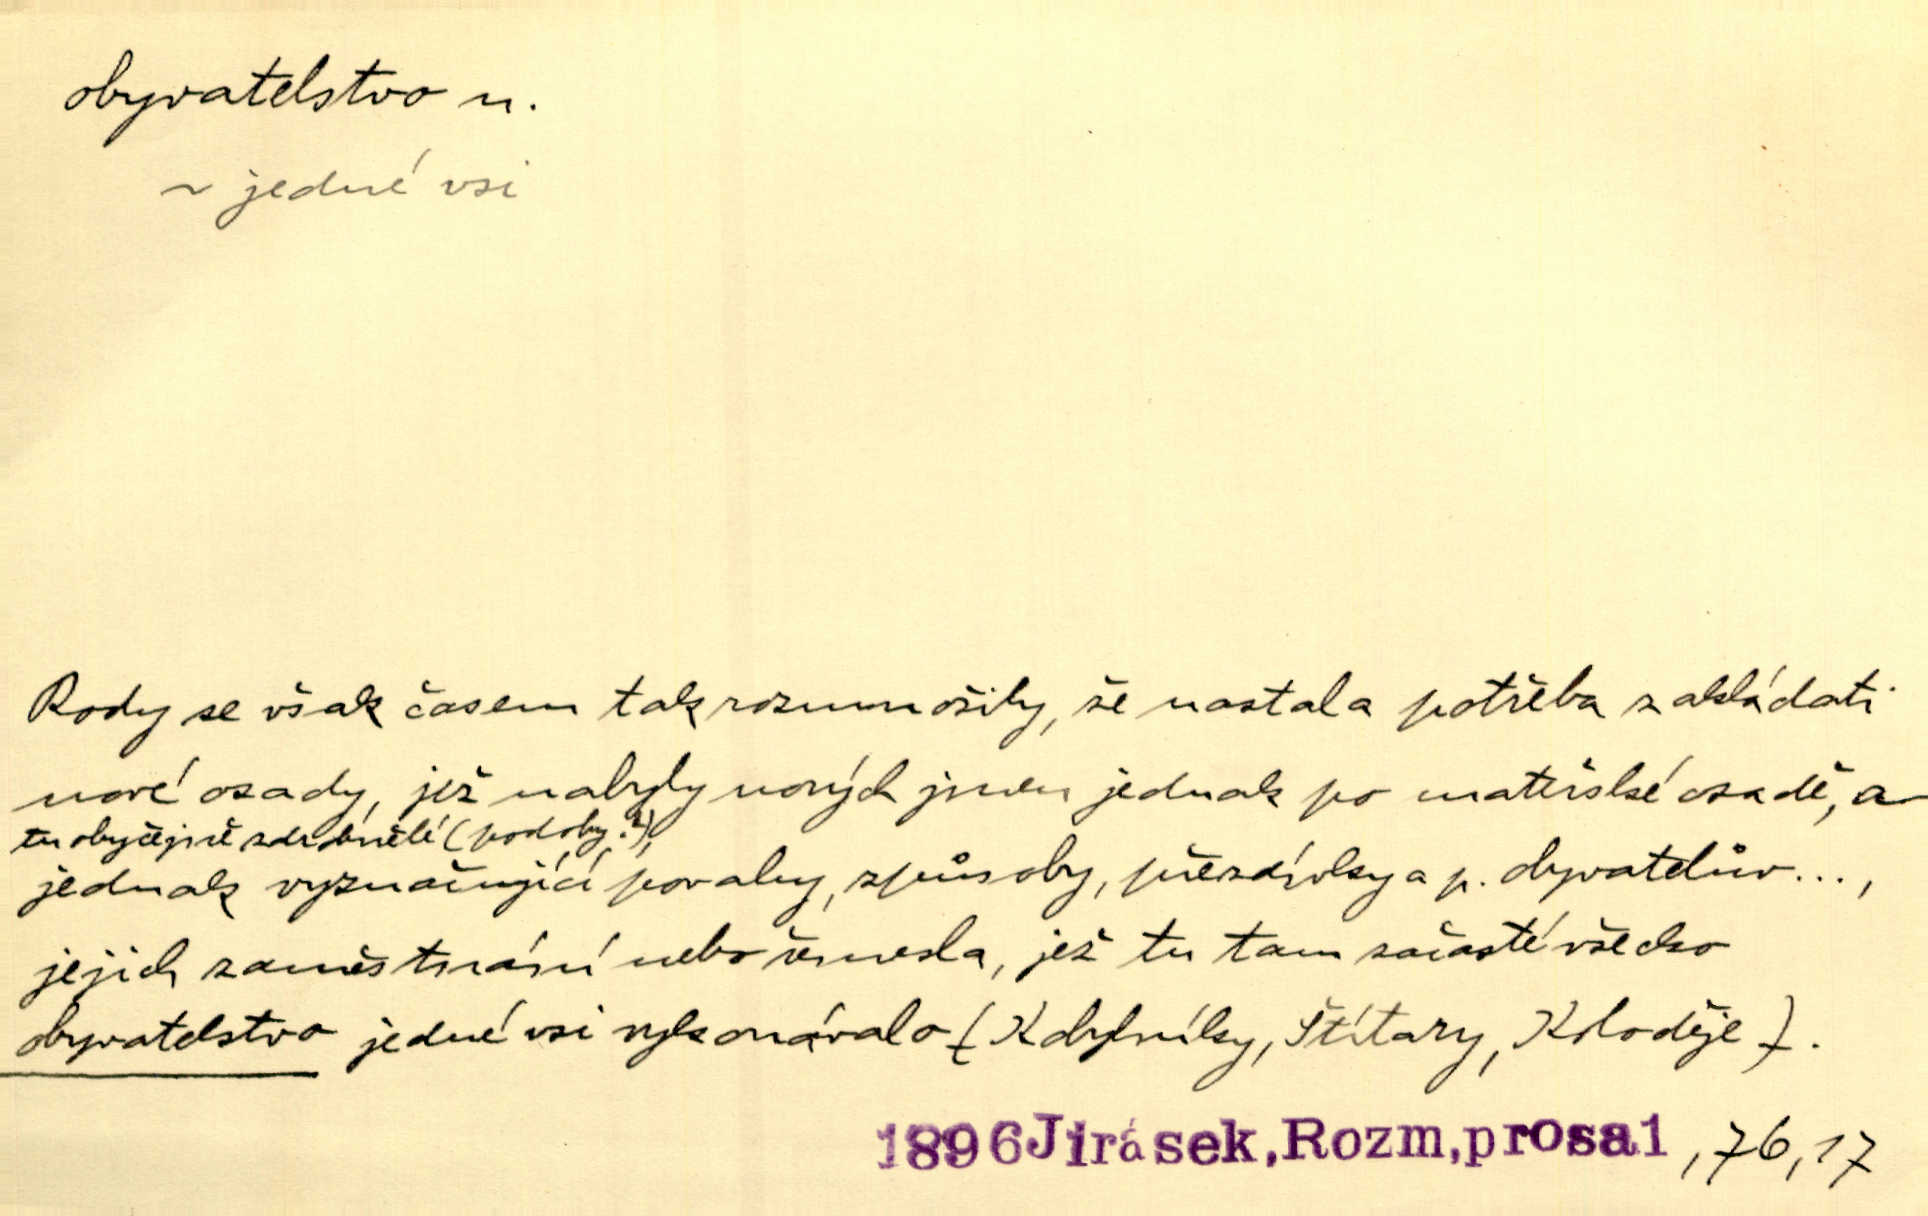 obyvatelstvo n.
~ jedné vsi
Rody se však časem tak rozmnožily, že nastala potřeba zakládati
nové osady, jež nabyly nových jmen jednak po mateřské osadě, a
tu obyčejně zdrobnělé (podoby?),
jednak vyznačující povahy, způsoby, přezdívky a p. obyvatelův...,
jejich zaměstnání nebo řemesla, jež tu tam začasté všecko
obyvatelstvo jedné vsi vykonávalo (Štítary, Koloděje).
1896 Jirásek, Rozm, prosa1, 76, 17